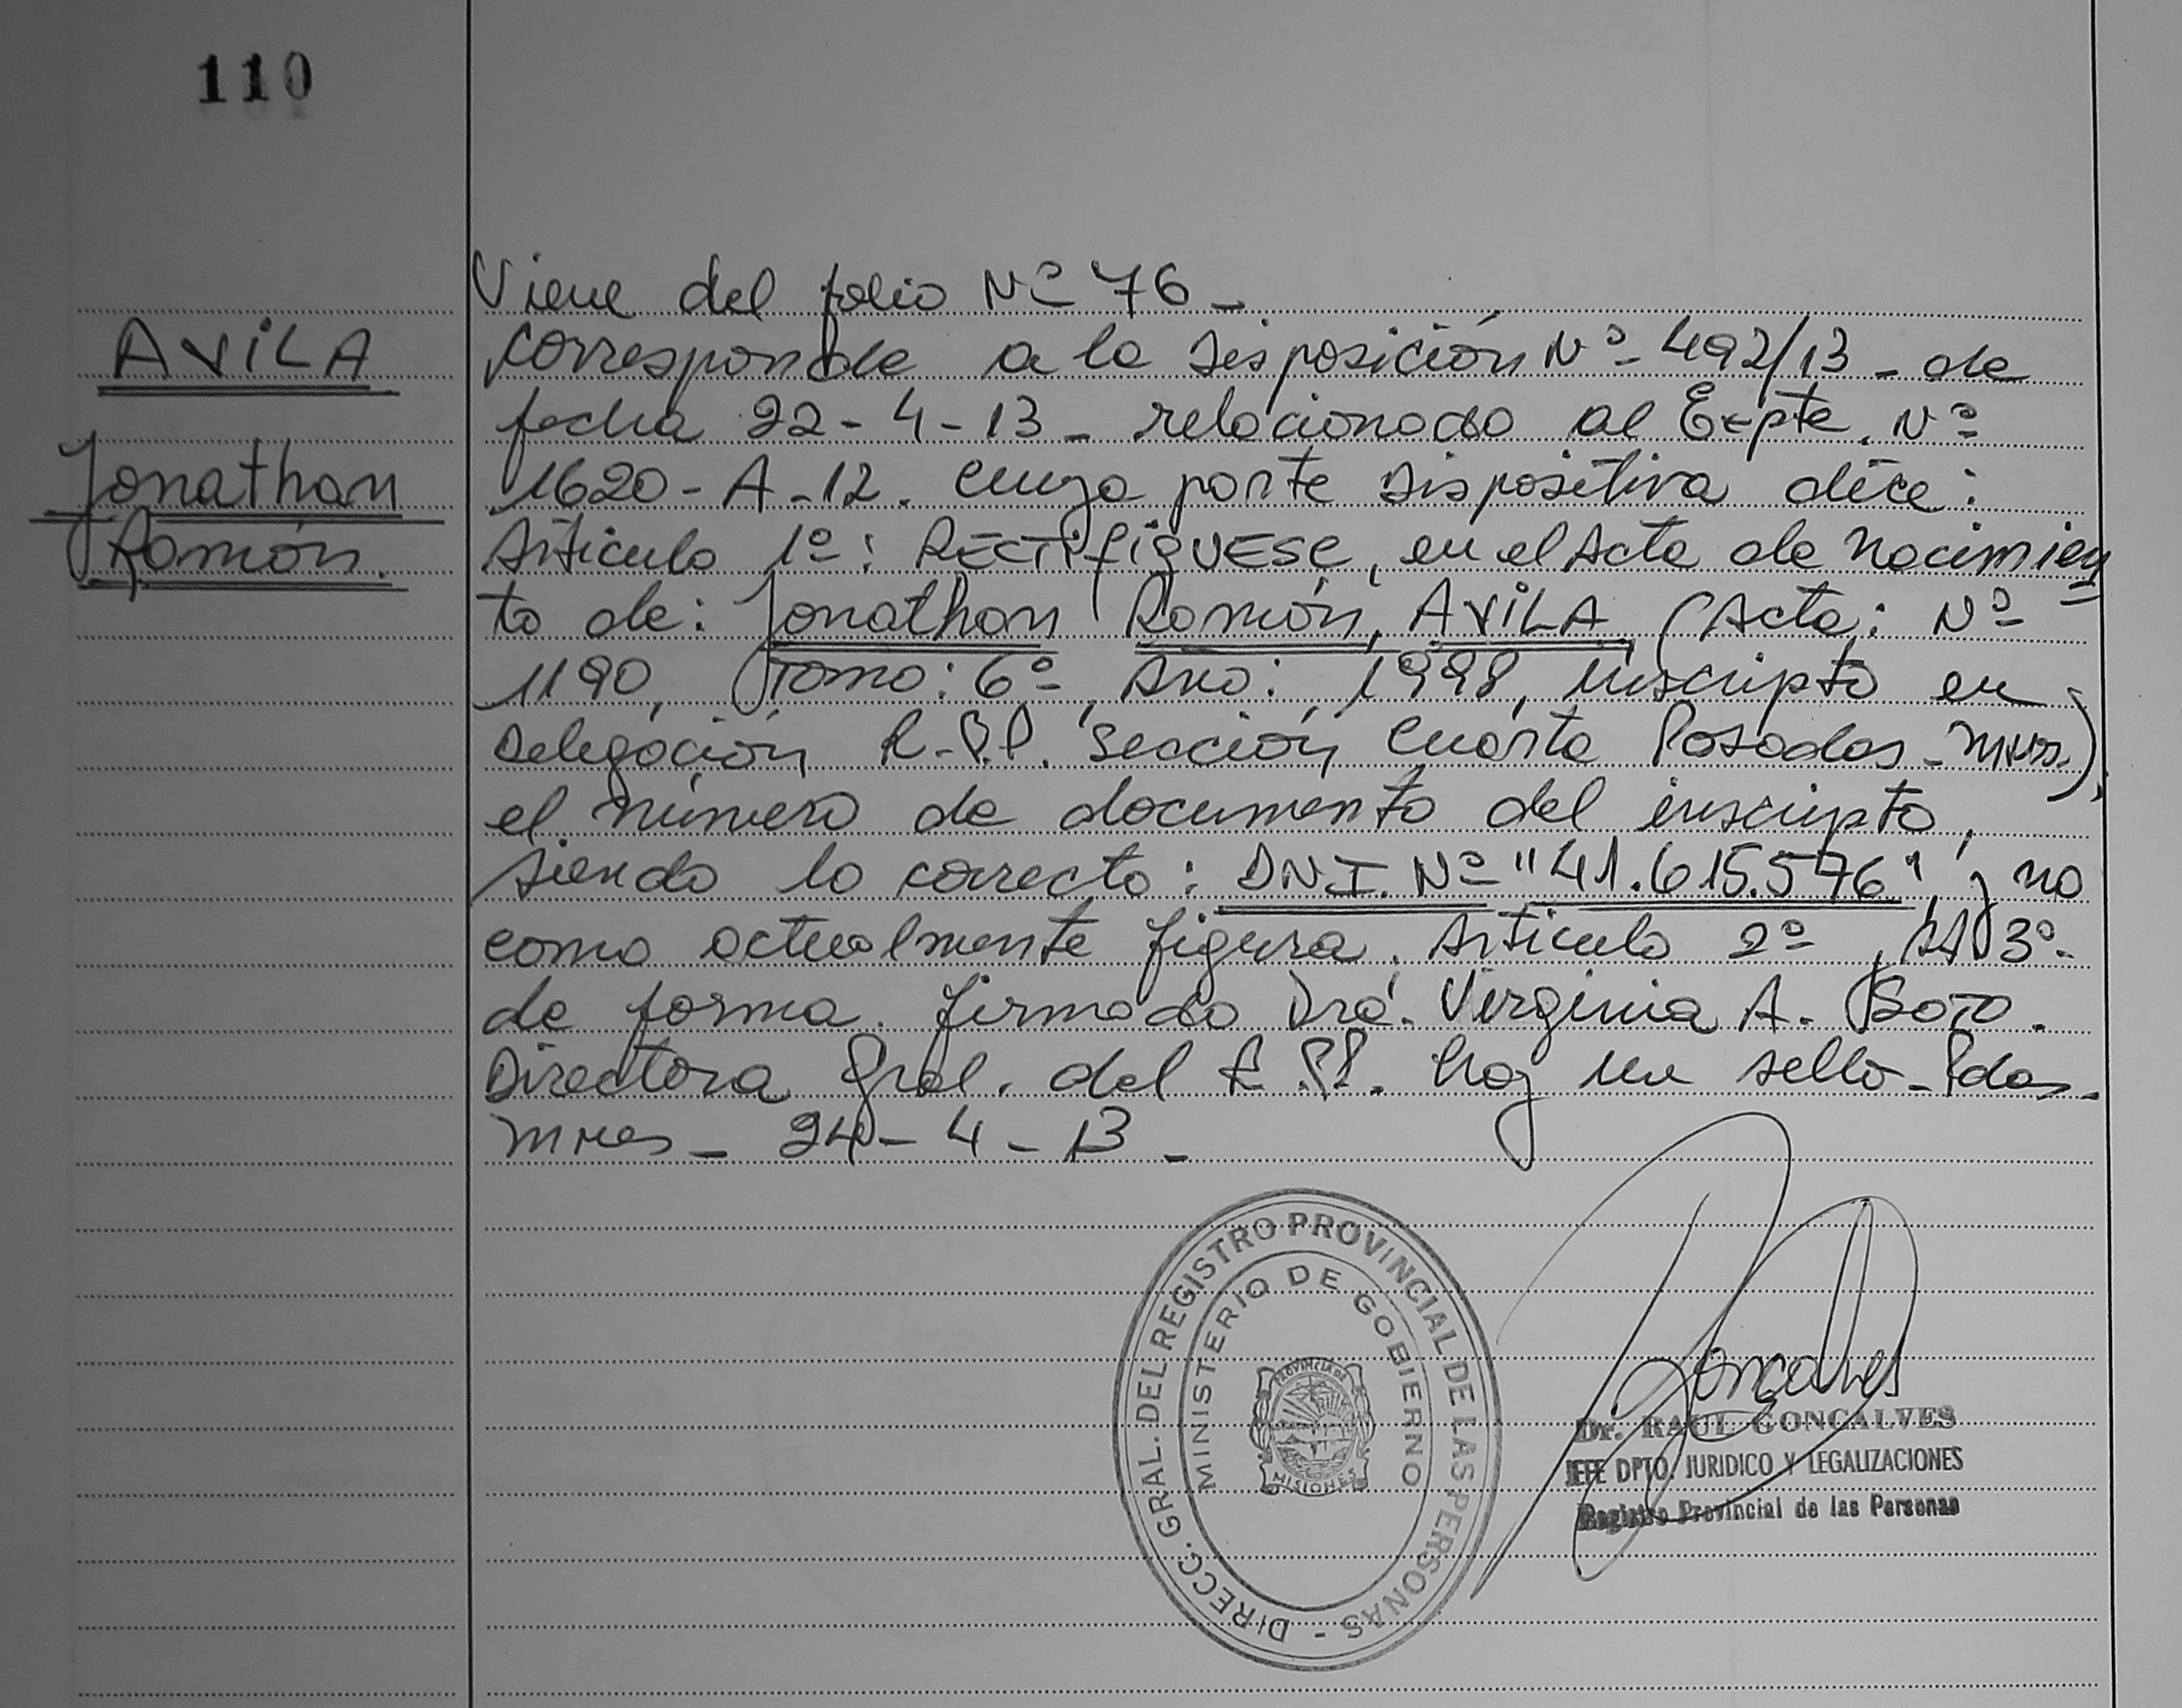 110
AVILA
Jonathan
Ramón.
Viene del folio Nº 76 -
Corresponde a la Disposición Nº 492/13 - de
fecha 22 - 4 - 13 - relacionado al Expte. Nº
1620 - A - 12. Cuya parte Dispositiva dice:
Artículo 1º: RECTIFIQUESE, en el Acta de Nacimien
to de: Jonathan Ramón, AVILA (Acta: Nº
1190, Tomo: 6º, Año: 1998, inscripto en
Delegación R.P.P. Sección Cuarta Posadas - Mnes.),
el número de documento del inscripto,
siendo lo correcto: DNI. Nº "41.615.576", y no
como actualmente figura. Artículo 2º, 3º.
de forma. firmado Dra. Virginia A. Bozo.
Directora Gral. del R.P.P. hay un sello - Pdas.
Mnes - 24 - 4 - 13 -
DIRECC. GRAL. DEL REGISTRO PROVINCIAL DE LAS PERSONAS -
MINISTERIO DE GOBIERNO
PROVINCIA DE
MISIONES
Goncalves
Dr. RAUL GONCALVES
JEFE DPTO. JURIDICO Y LEGALIZACIONES
Registro Provincial de las Personas